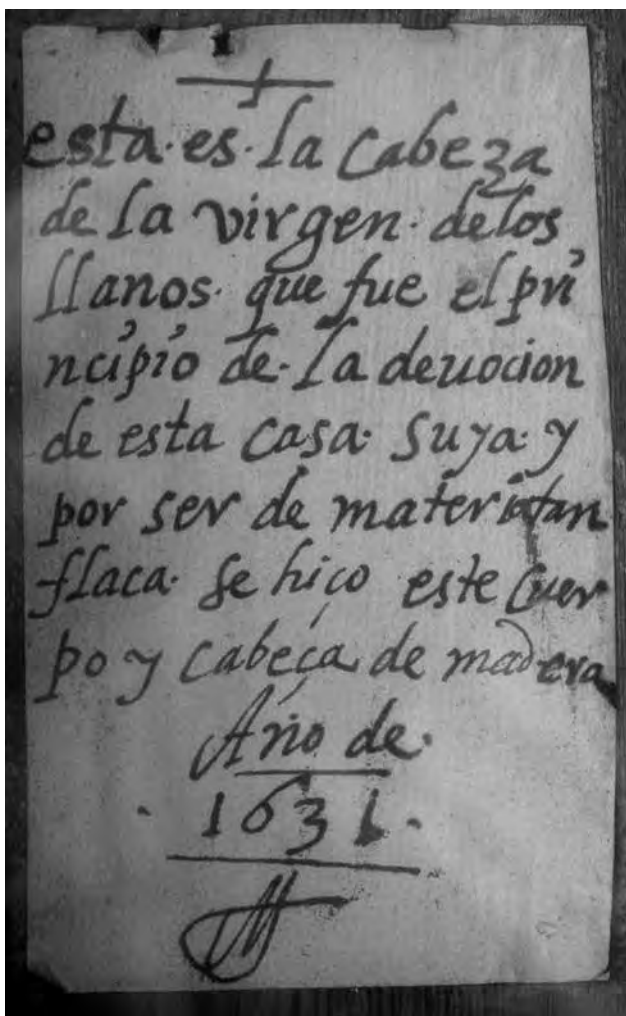 esta·es·la cabeza
de la virgen·delos
llanos·que fue el pri
ncipio de·la deuocion
de esta casa·suya·y
por ser de materia tan
flaca·se hiço este cuer
po y cabeça de madera
Año de·
·1631·